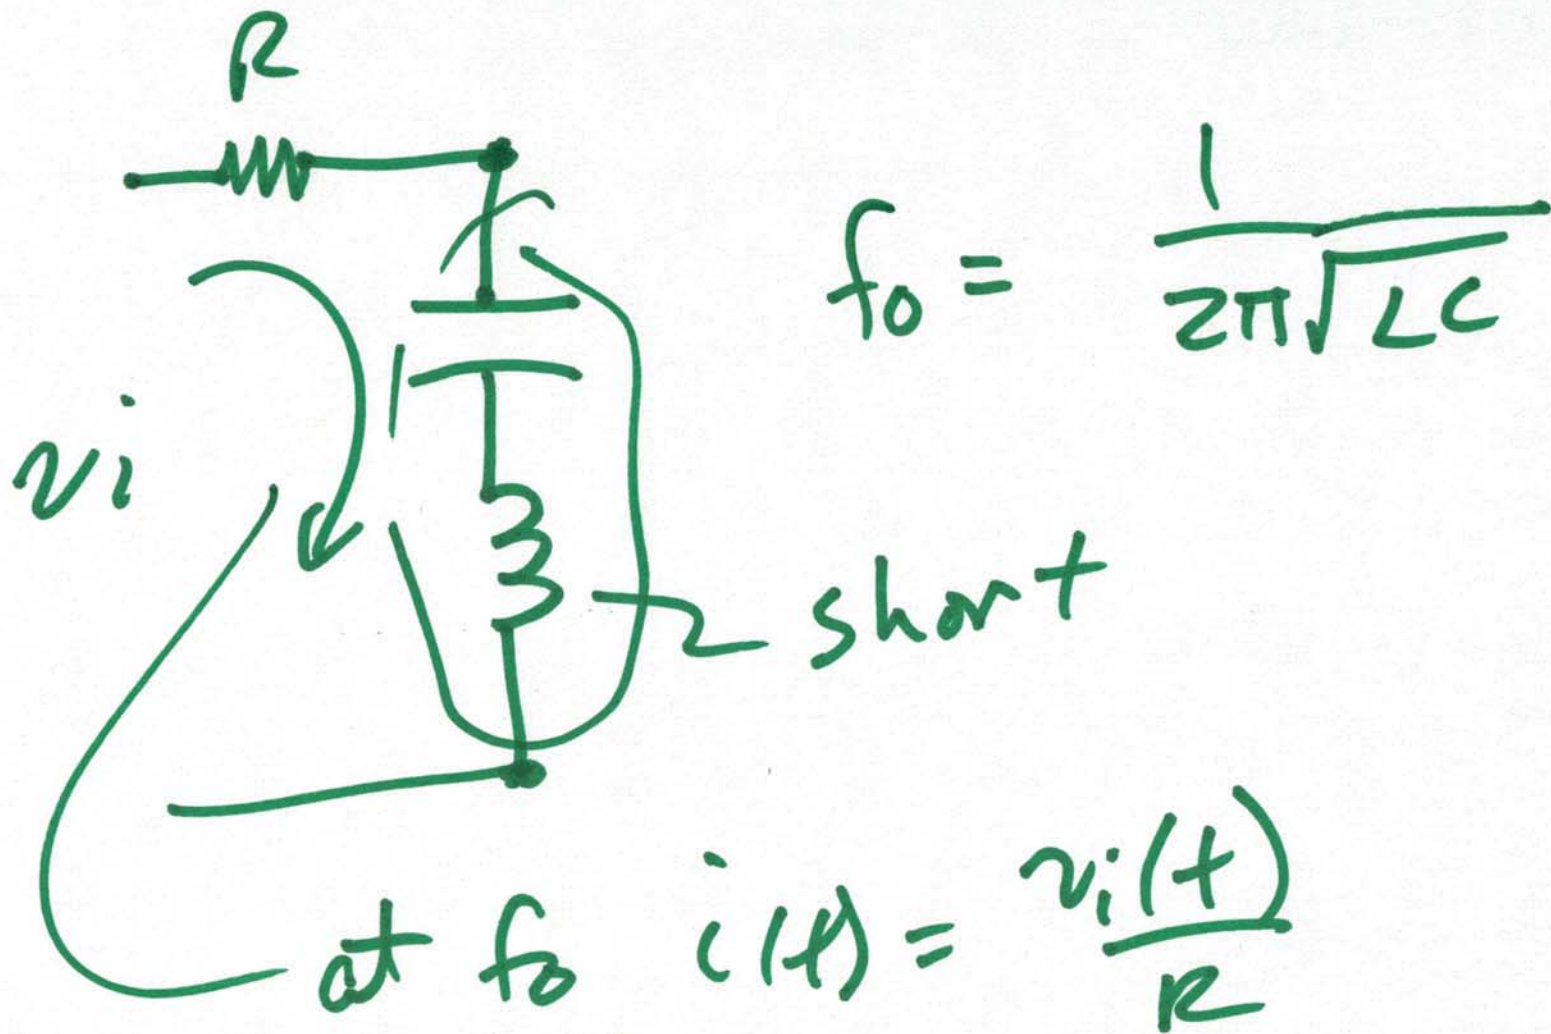 R
f₀ = 1 / 2π√LC
vi
short
at f₀ i(t) = vᵢ(t) / R